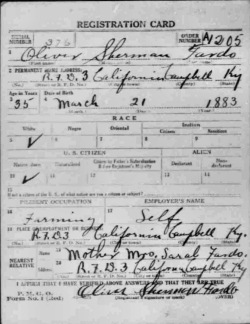 REGISTRATION CARD
SERIAL NUMBER 376 ORDER NUMBER A1205
1 Oliver Sherman Fardo
2 PERMANENT HOME ADDRESS:
R.F.D.3 California Campbell Ky
Age in Years Date of Birth
35 March 21 1883
RACE
White Negro Oriental Indian
Citizen Noncitizen
U. S. CITIZEN ALIEN
Native Born Naturalized Citizen by Father's Naturalization Before Registrant's Majority Declarant Non-declarant
15 If not a citizen of the U. S., of what nation are you a citizen or subject?
PRESENT OCCUPATION EMPLOYER'S NAME
Farming Self
PLACE OF EMPLOYMENT OR BUSINESS:
R.F.D.3 California Campbell Ky.
NEAREST RELATIVE
Name Mother Mrs. Sarah Fardo.
Address R.F.D.3 California Campbell Ky
I AFFIRM THAT I HAVE VERIFIED ABOVE ANSWERS AND THAT THEY ARE TRUE
P. M. G. O.
Form No. 1 (Red) Oliver Sherman Fardo